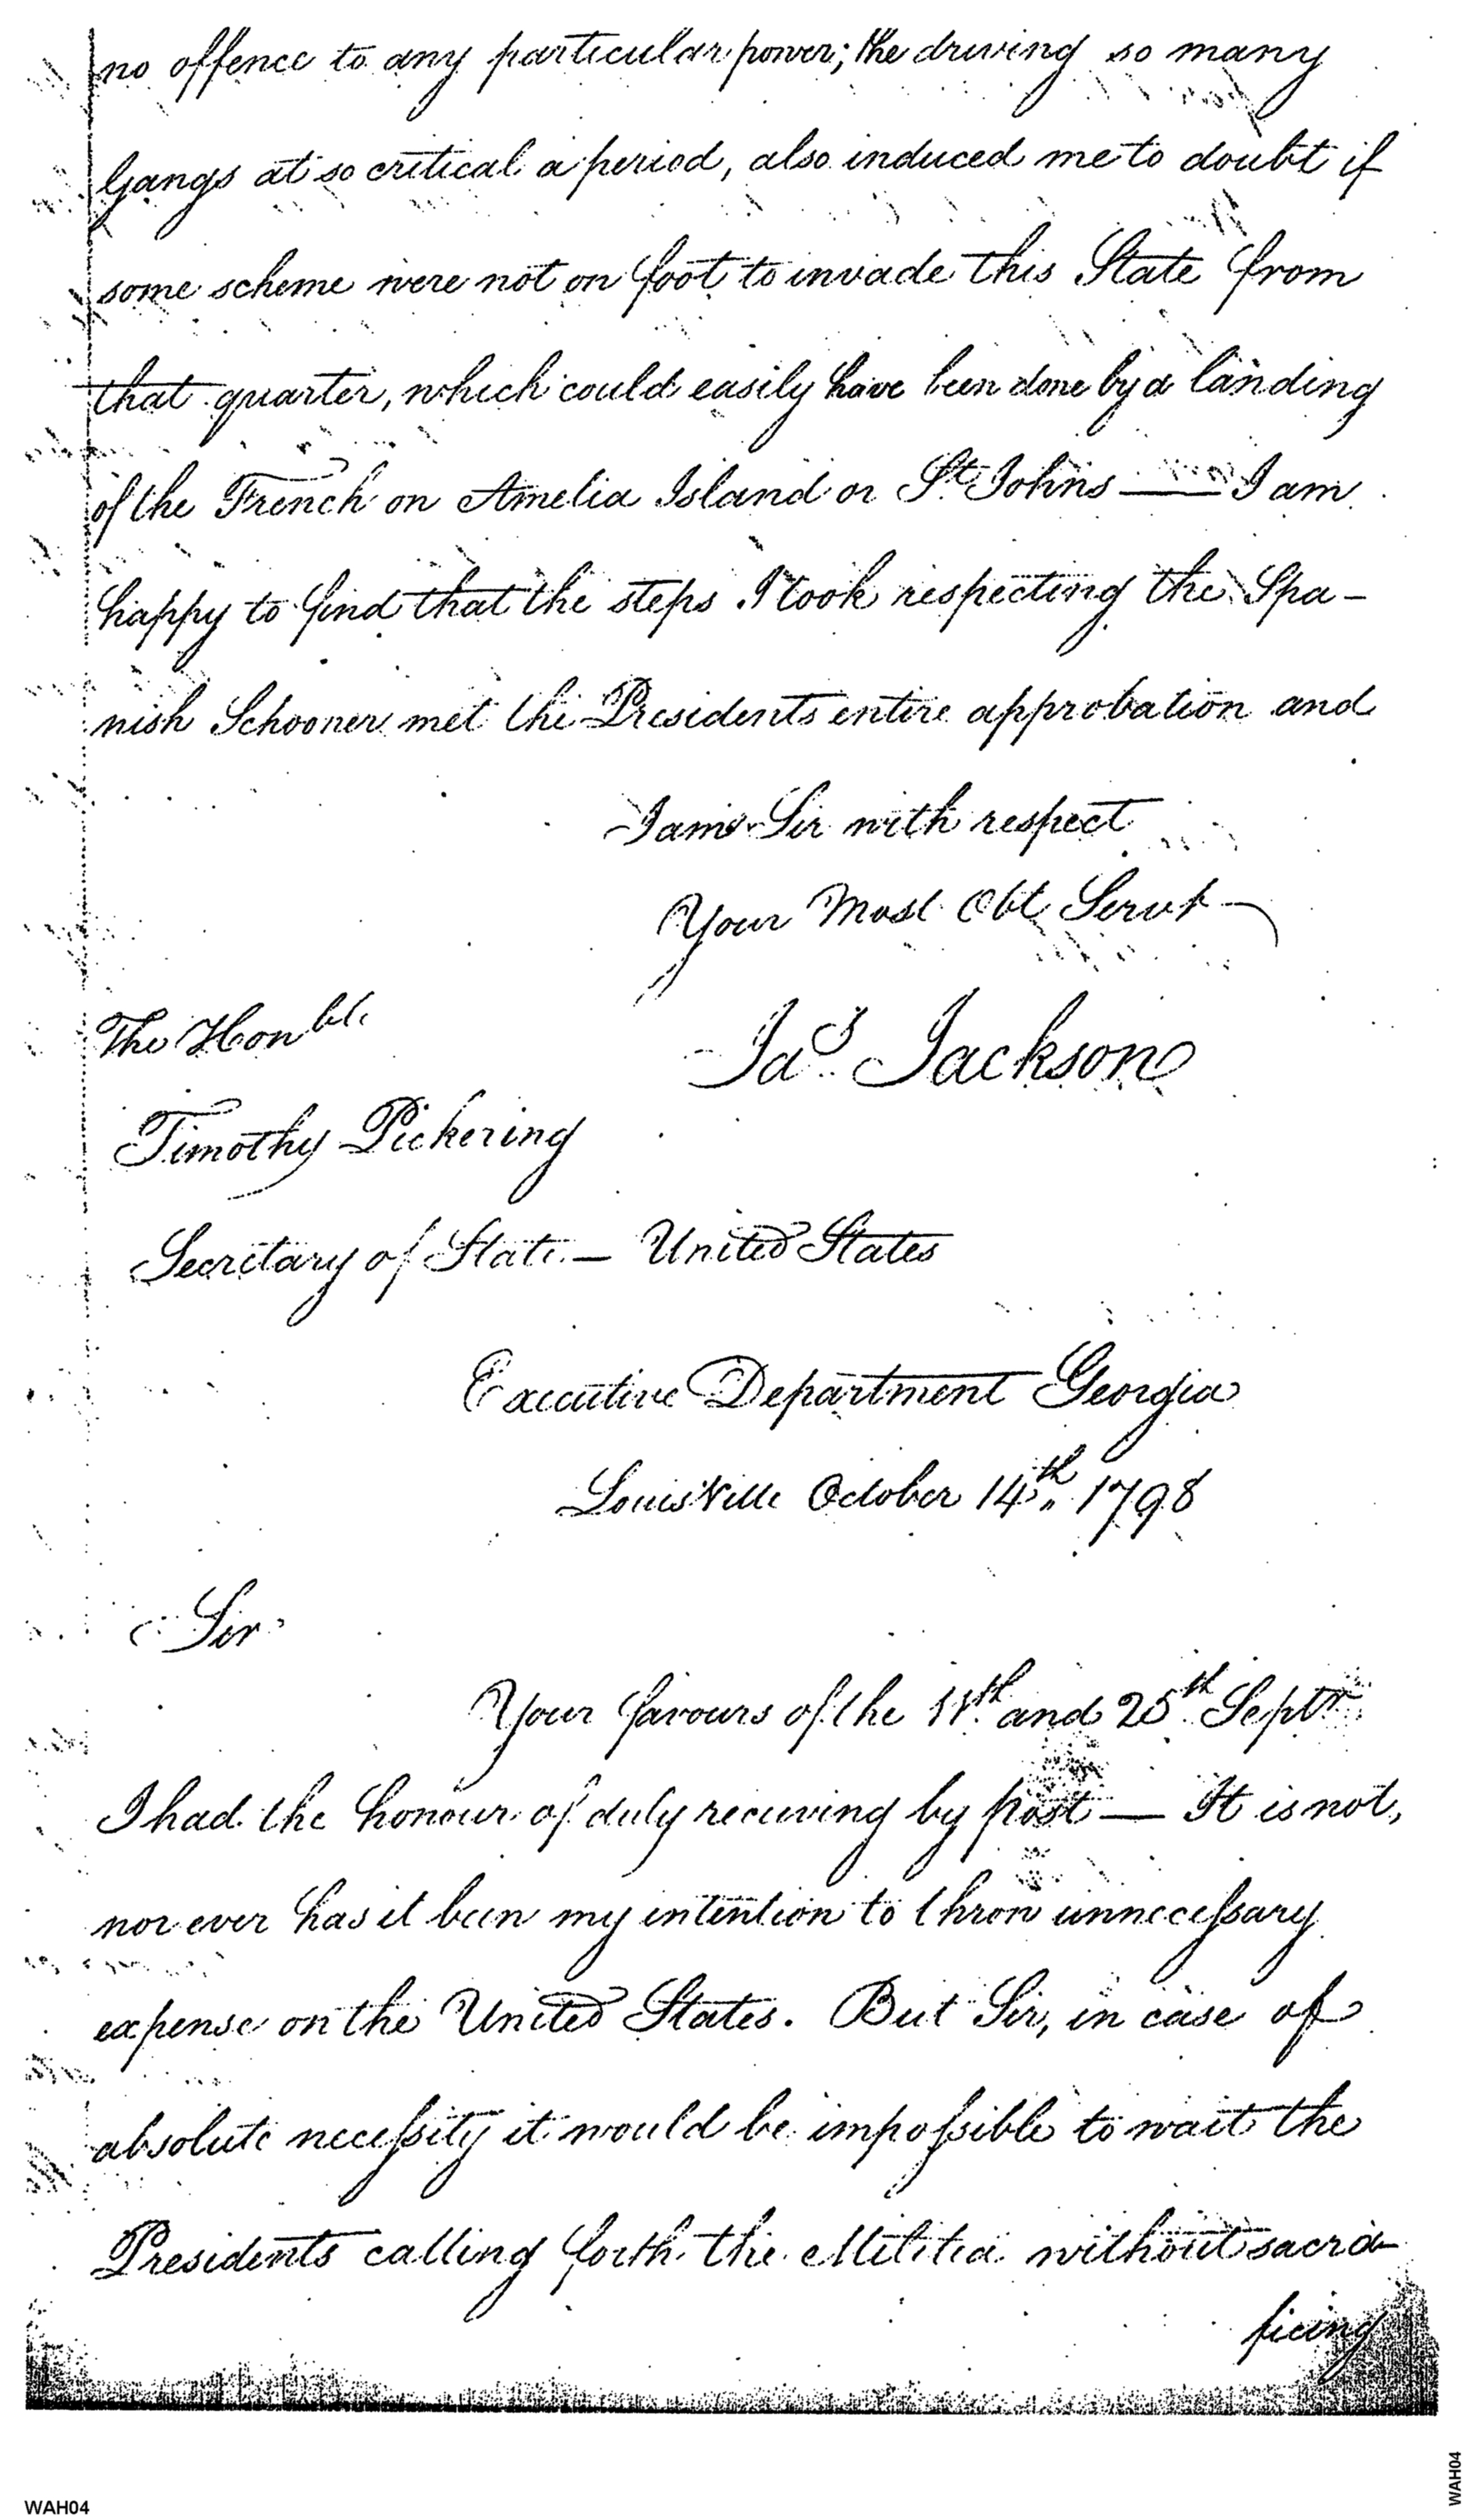 no offence to any particular power; the driving so many
Gangs at so critical a period, also induced me to doubt if
some scheme were not on foot to invade this State from
that quarter, which could easily have been done by a landing
of the French on Amelia Island or St. Johns — I am
happy to find that the steps I took respecting the Spa-
nish Schooner met the Presidents entire approbation and
I am Sir with respect
Your Most Obt Servt
Jas. Jackson
The Honble
Timothy Pickering
Secretary of State — United States
Executive Department Georgia
Louisville October 14th. 1798
Sir
Your favours of the 11th. and 25th. Septr.
I had the honour of duly receiving by post — It is not,
nor ever has it been my intention to throw unnecessary
expense on the United States. But Sir, in case of
absolute necessity it would be impossible to wait the
Presidents calling forth the Militia without sacri-
ficing
WAH04
WAH04